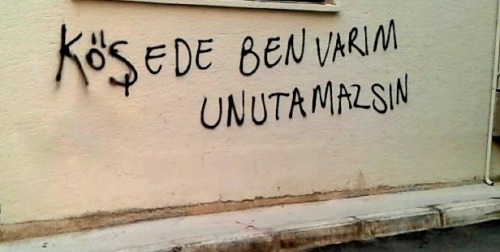 KÖŞEDE BEN VARIM
UNUTAMAZSIN